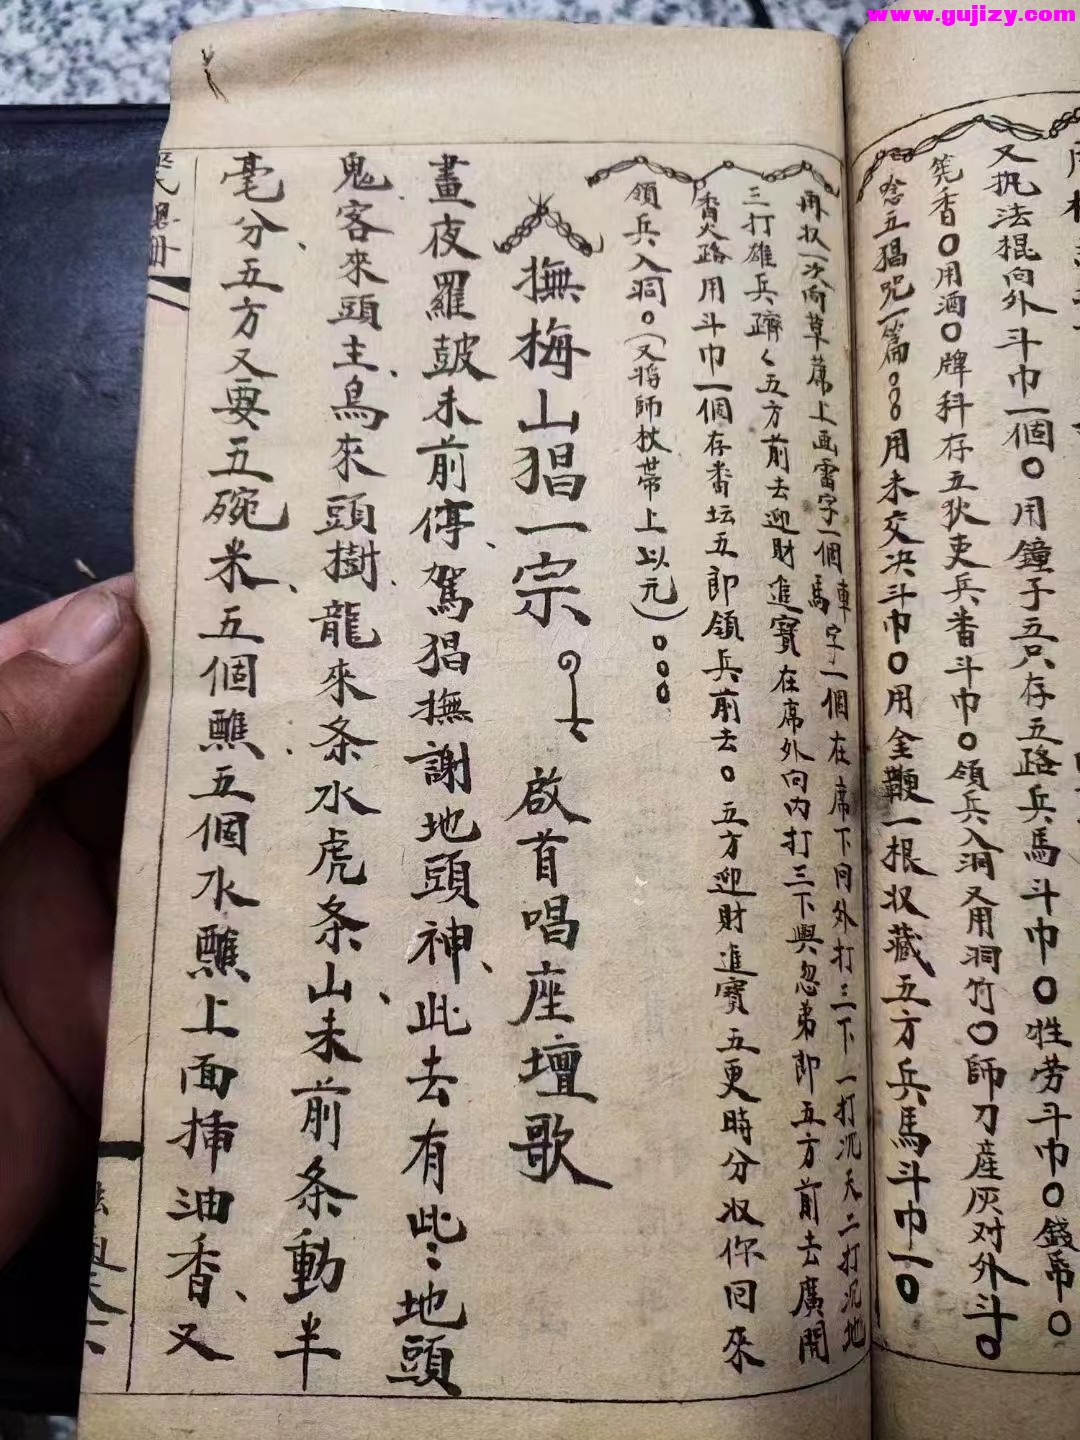 www.gujizy.com
又执法棍向外斗巾一個○用鐘子五只存五路兵馬斗巾○牲劳斗巾○錢帛○
筅香○用酒○牌科存五狄吏兵香斗巾○領兵入洞又用洞竹○師刀産灰对外斗○
唸五猖咒一篇○○○用未交决斗巾○用金鞭一根収藏五方兵馬斗巾一○
再扠一次向草蓆上画雷字一個車字一個在席下同外打三下一打沉天二打沉地
馬
三打雄兵躋〻五方前去迎財進寶在席外向内打三下與忽弟即五方前去廣開
香火路用斗巾一個存番坛五即領兵前去○五方迎財進寶五更時分収你回來
領兵入洞○(又将師杖帶上以元)○○○
撫梅山猖一宗 啟首唱座壇歌
畫夜羅鼓未前停、駕猖撫謝地頭神、此去有此〻地頭
鬼、客來頭主、鳥來頭樹、龍來条水虎条山、未前条動半
毫分、五方又要五碗米、五個醮五個水醮上面揷油香、又